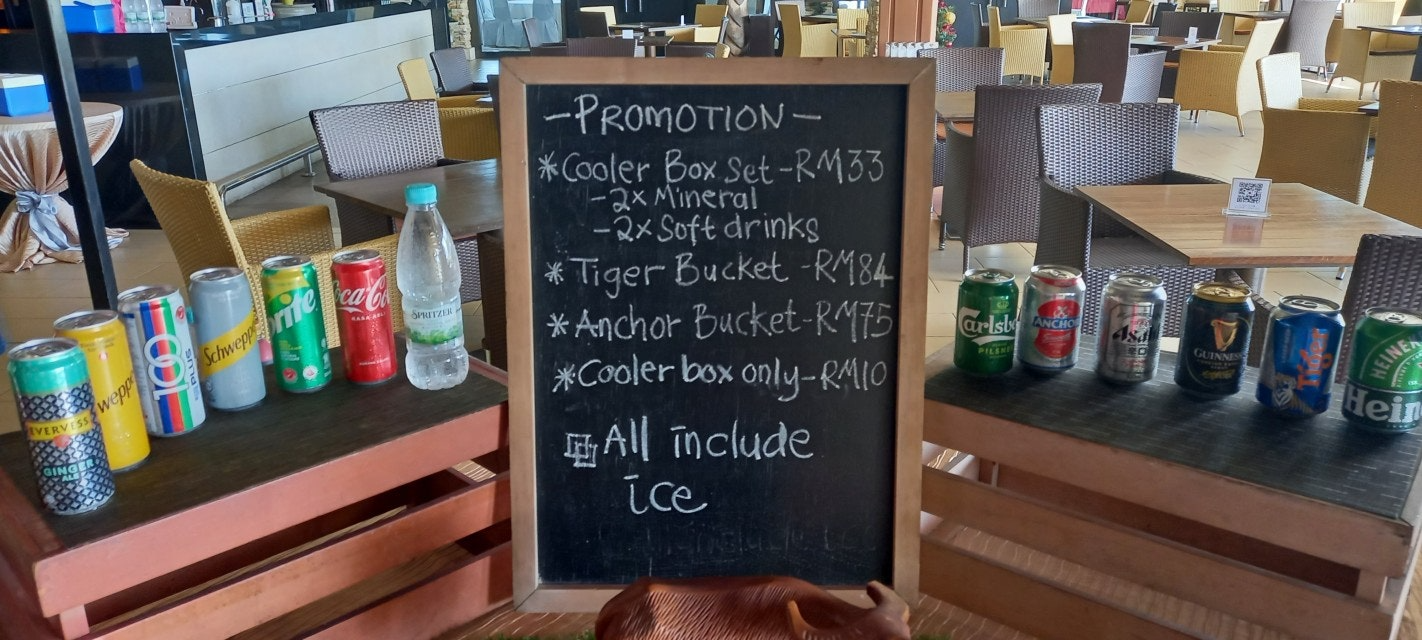 - PROMOTION -
* Cooler Box Set - RM33
- 2x Mineral
- 2x Soft drinks
* Tiger Bucket - RM84
* Anchor Bucket - RM75
* Cooler box only - RM10
All include
ice
EVERVESS
GINGER
ALE
weppe
100
PLUS
Schwepp
rite
Coca-Co
SPRITZER
Carlsb
PILSN
ANCHOR
Asah
GUINNESS
Tiger
HEINE
Hein